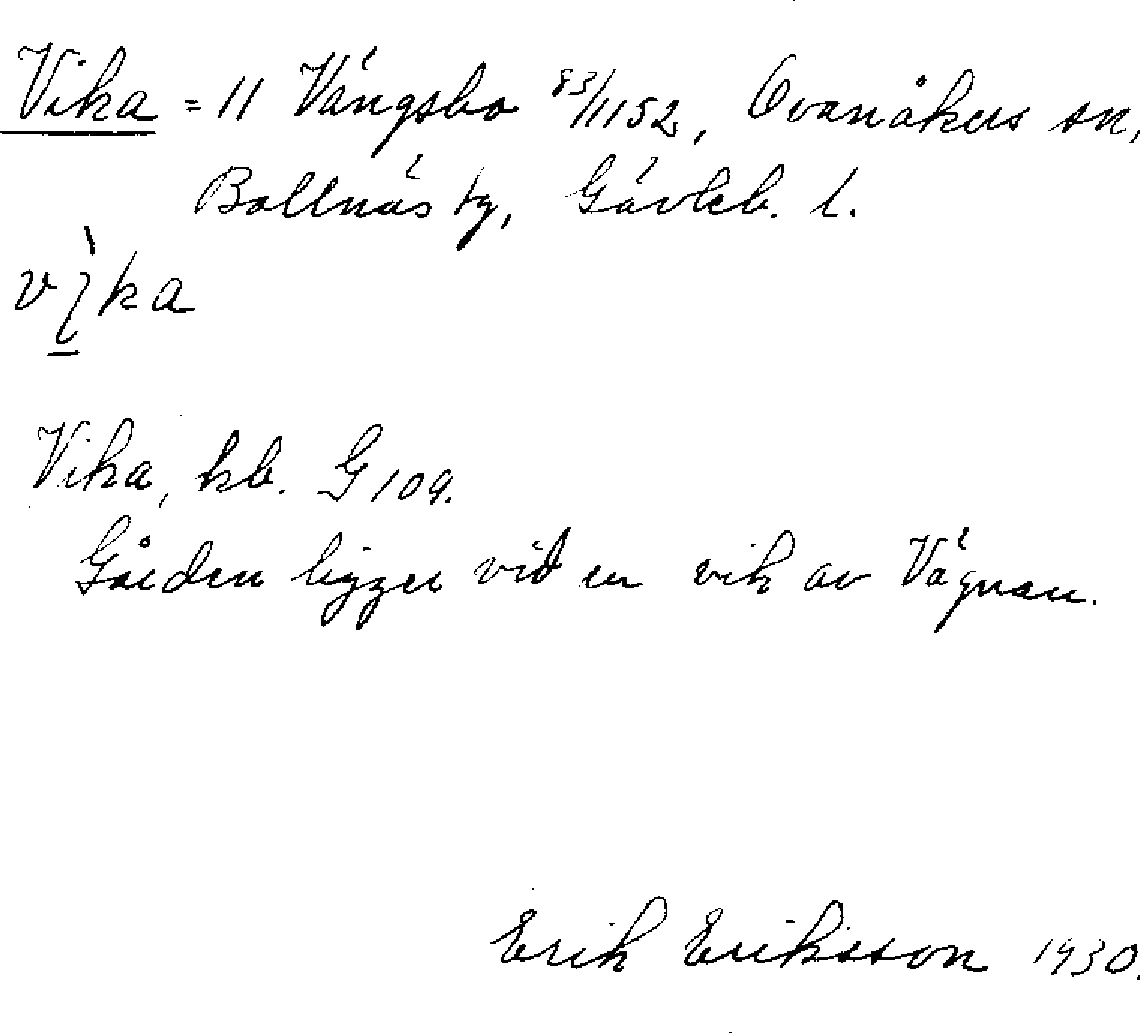 Vika = 11 Vängsbo 83/1152, Ovanåkers sn,
Bollnäs tg, Gävleb. l.
vìka
Vika, kb. G 109.
Gården ligger vid en vik av Vägnan.
Erik Eriksson 1930.